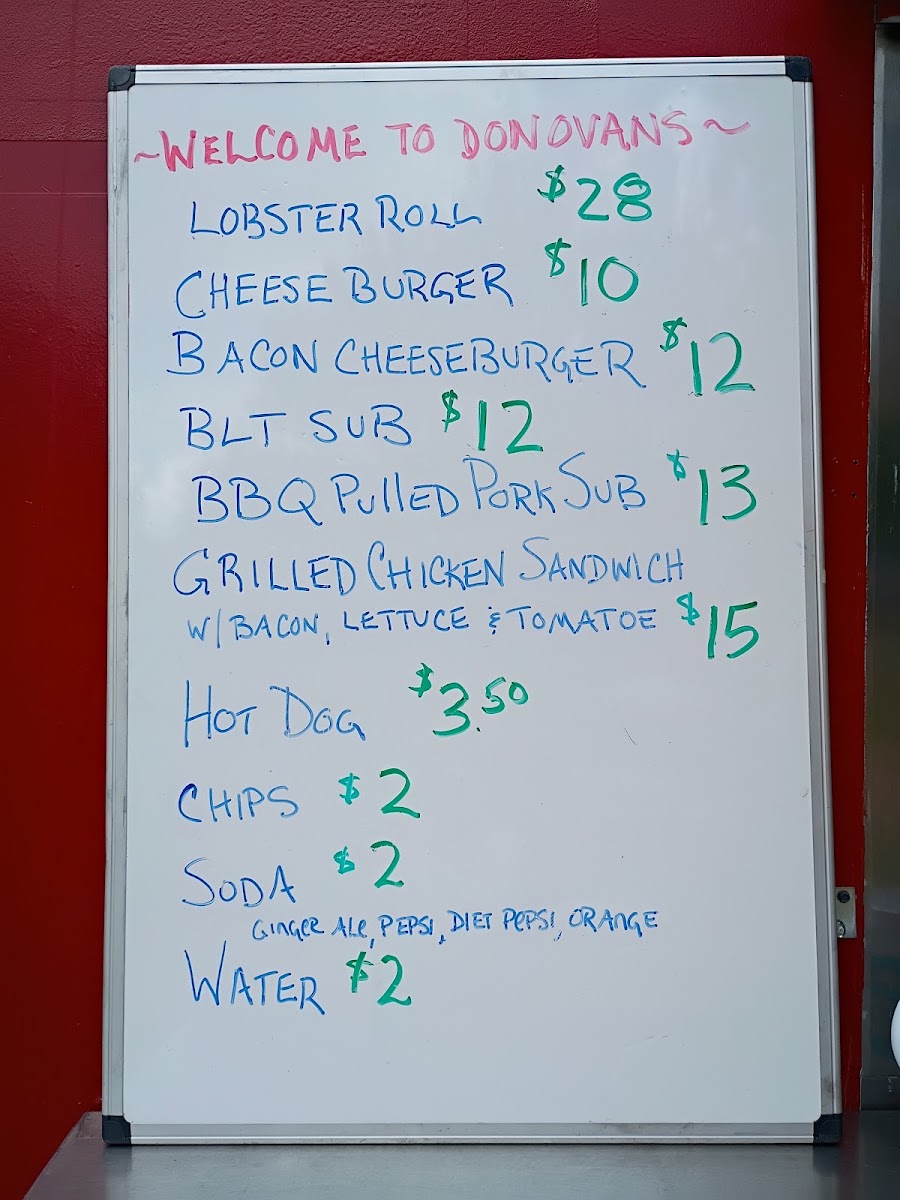 ~WELCOME TO DONOVANS~
LOBSTER ROLL $28
CHEESE BURGER $10
BACON CHEESEBURGER $12
BLT SUB $12
BBQ PullED PORK SUB $13
GRILLED CHICKEN SANDWICH
W/BACON, LETTUCE & TOMATOE $15
HOT DOG $3.50
CHIPS $2
SODA $2
GINGER ALE, PEPSI, DIET PEPSI, ORANGE
WATER $2